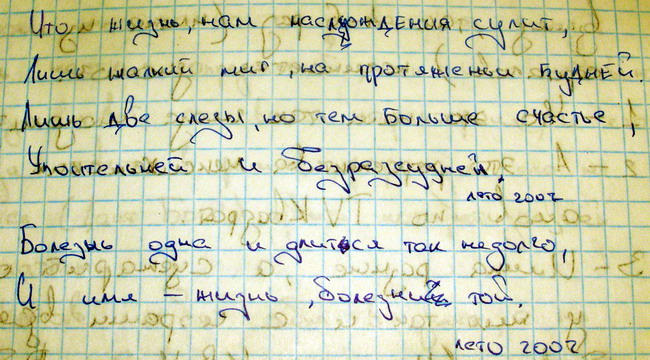 Что жизнь, нам наслождения сулит,
Лишь жалкий миг, на протяженьи Будней.
Лишь две слезы, но тем больше счастье,
Упоительней и безразсудней.
лето 2007
Болезнь одна и длиться так недолго,
И имя - жизнь, болезни той.
лето 2007